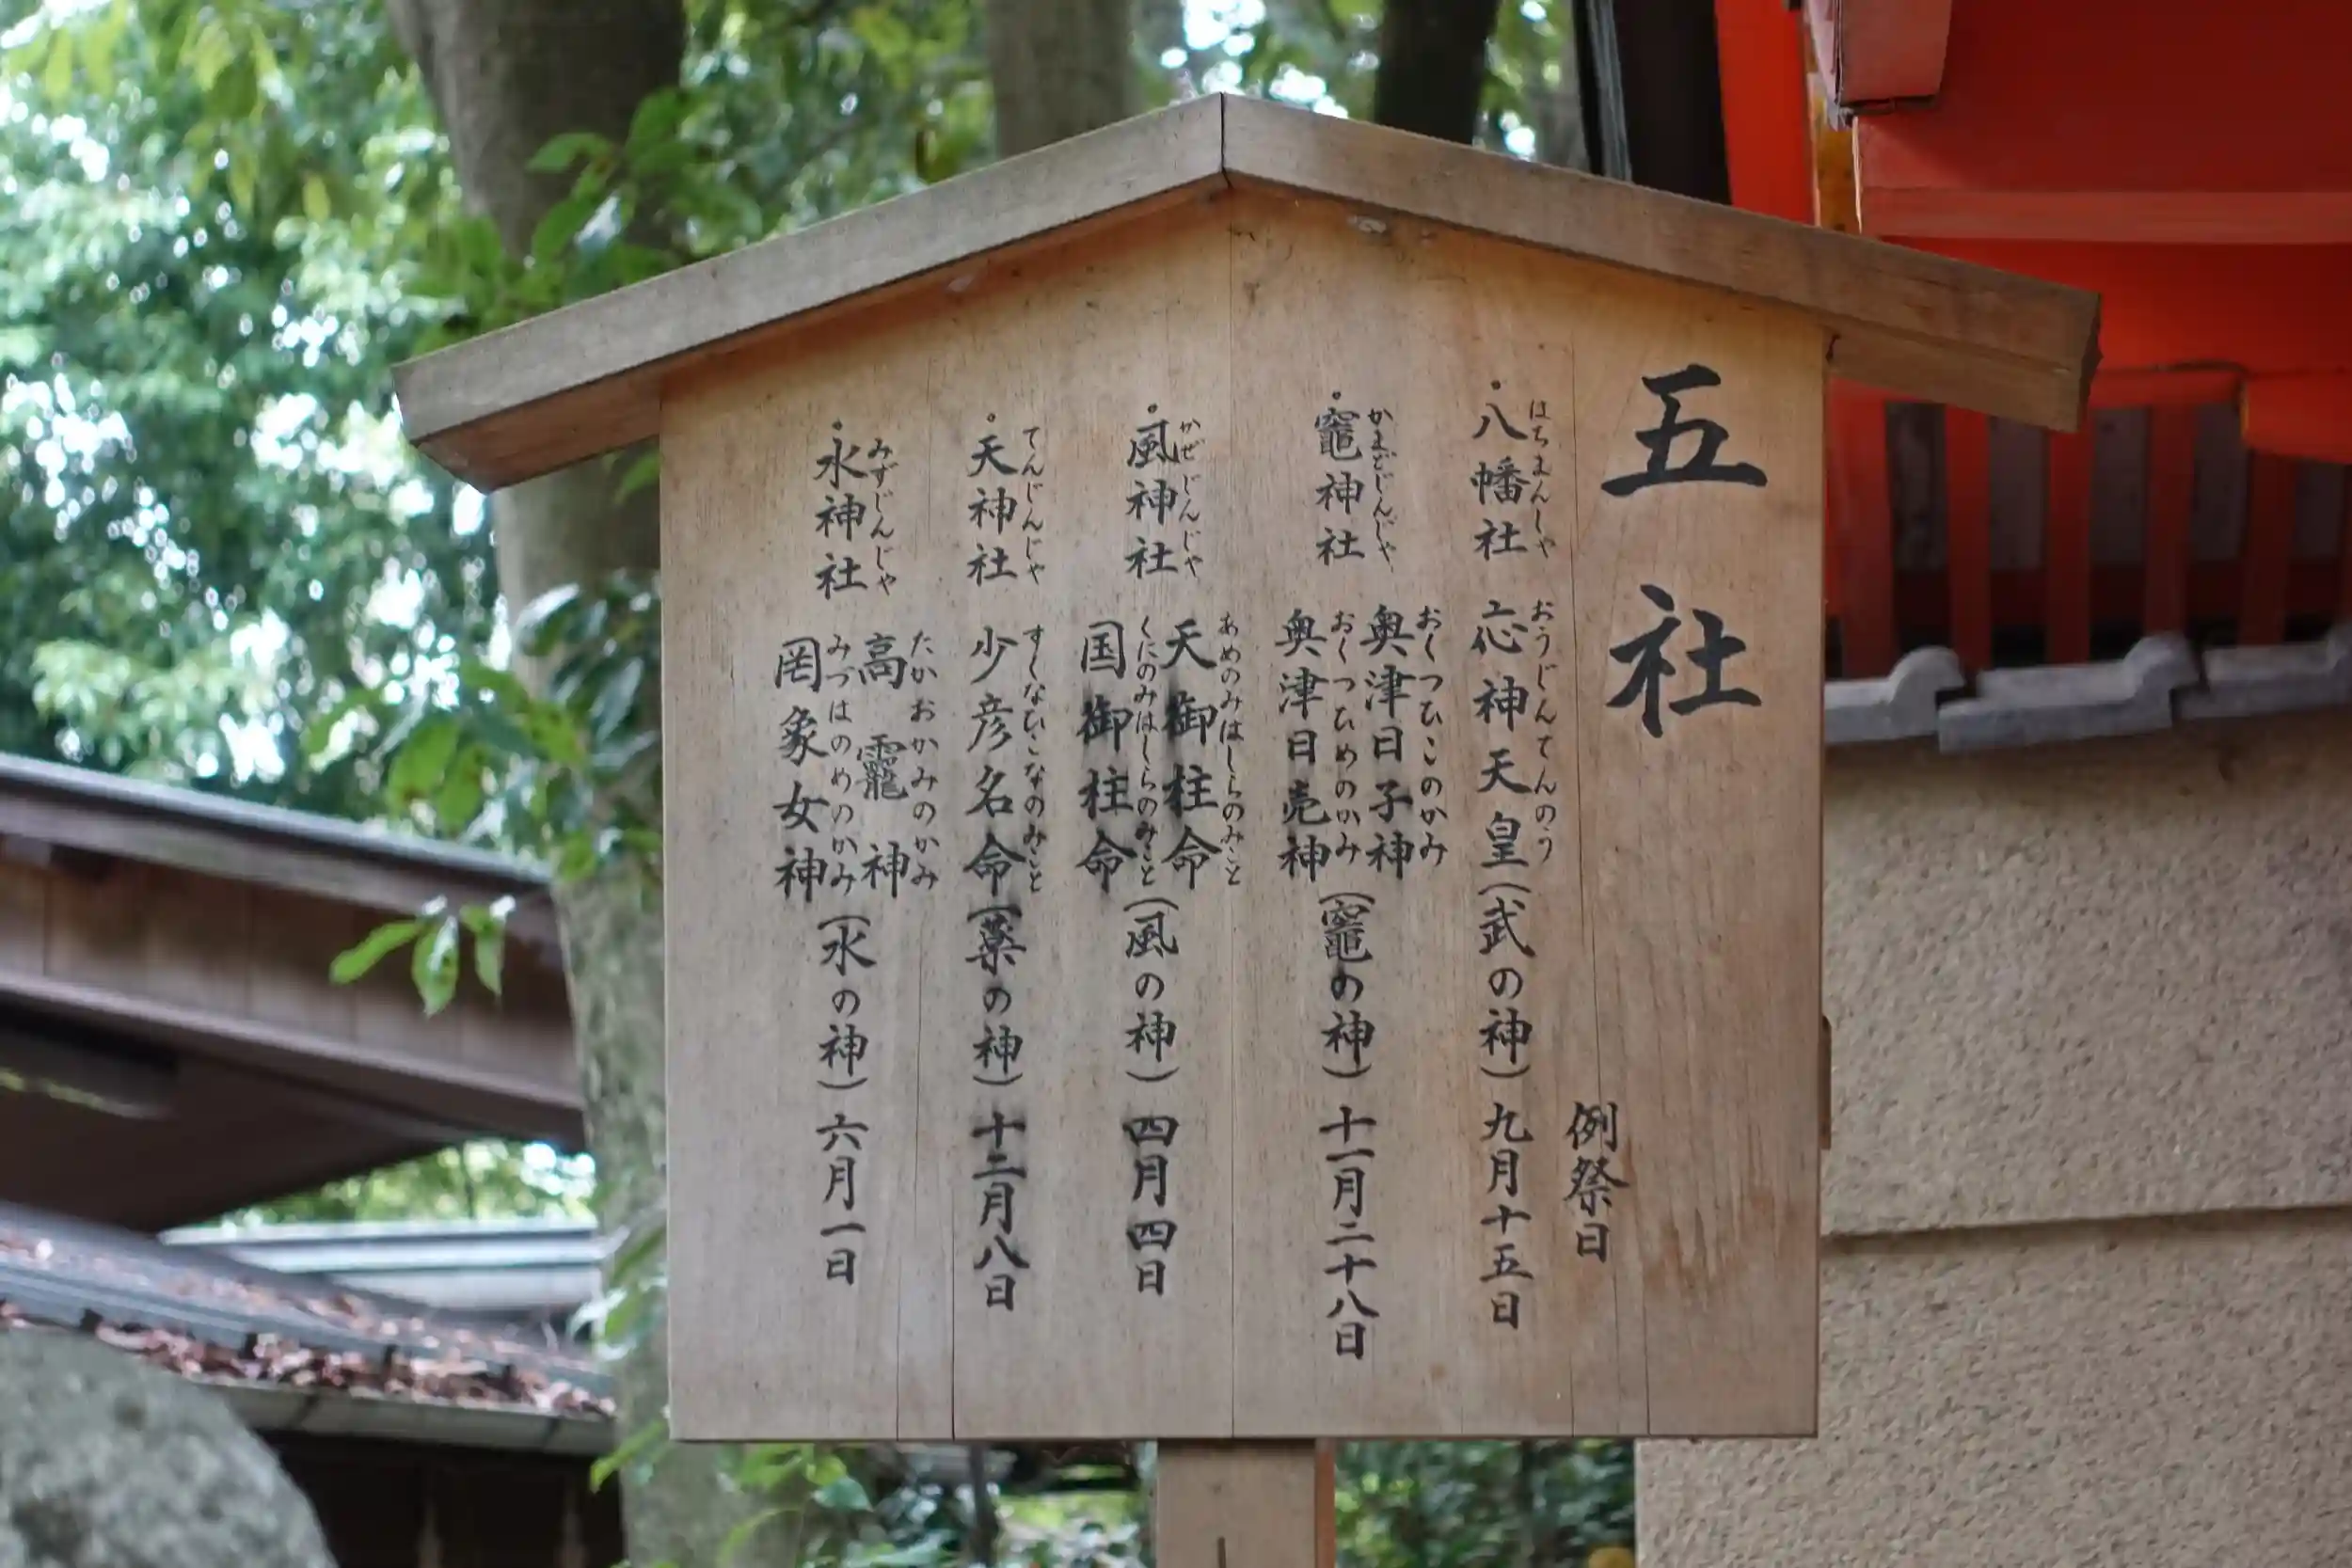 五社
例祭日
・八幡社 応神天皇(武の神) 九月十五日
はちまんしゃ おうじんてんのう
・竈神社 奥津日子神 奥津日売神(竈の神) 十一月二十八日
かまどじんじゃ おくつひこのかみ おくつひめのかみ
・風神社 天御柱命 国御柱命(風の神) 四月四日
かぜじんじゃ あめのみはしらのみこと くにのみはしらのみこと
・天神社 少彦名命(薬の神) 十二月八日
てんじんじゃ すくなひこなのみこと
・水神社 高龗神 罔象女神(水の神) 六月一日
みずじんじゃ たかおかみのかみ みづはのめのかみ